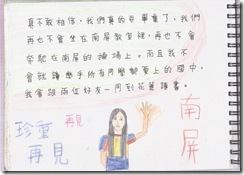 真不敢相信，我們真的要畢業了，我們
再也不會坐在南屏教室裡，再也不會
奔馳在南屏的操場上。而且我不
會就讀幾乎所有同學都要上的國中，
我會跟兩位好友一同到花蓮讀書。
再見
珍重
再見
南屏